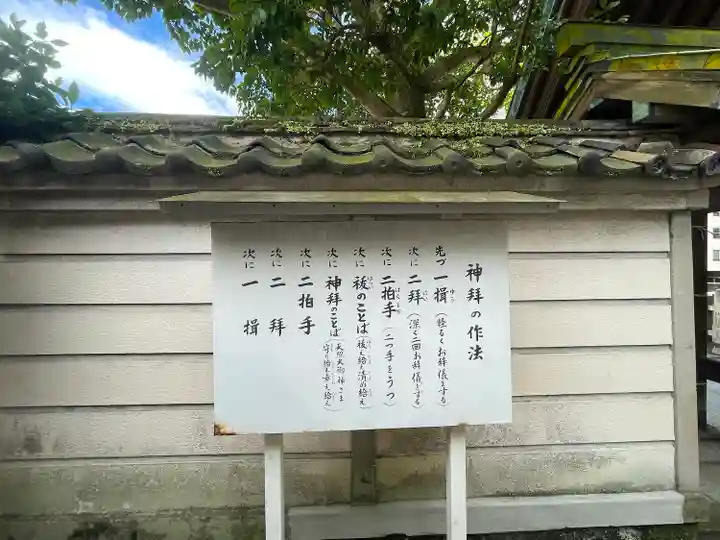 神拝の作法
先づ 一揖(軽るくお辞儀をする)
次に 二拝(深く二回お辞儀をする)
次に 二拍手(二つ手をうつ)
次に 祓のことば(祓え給え清め給え)
次に 神拝のことば(天照大御神さま 守り給え幸え給え)
次に 二拍手
次に 二拝
次に 一揖